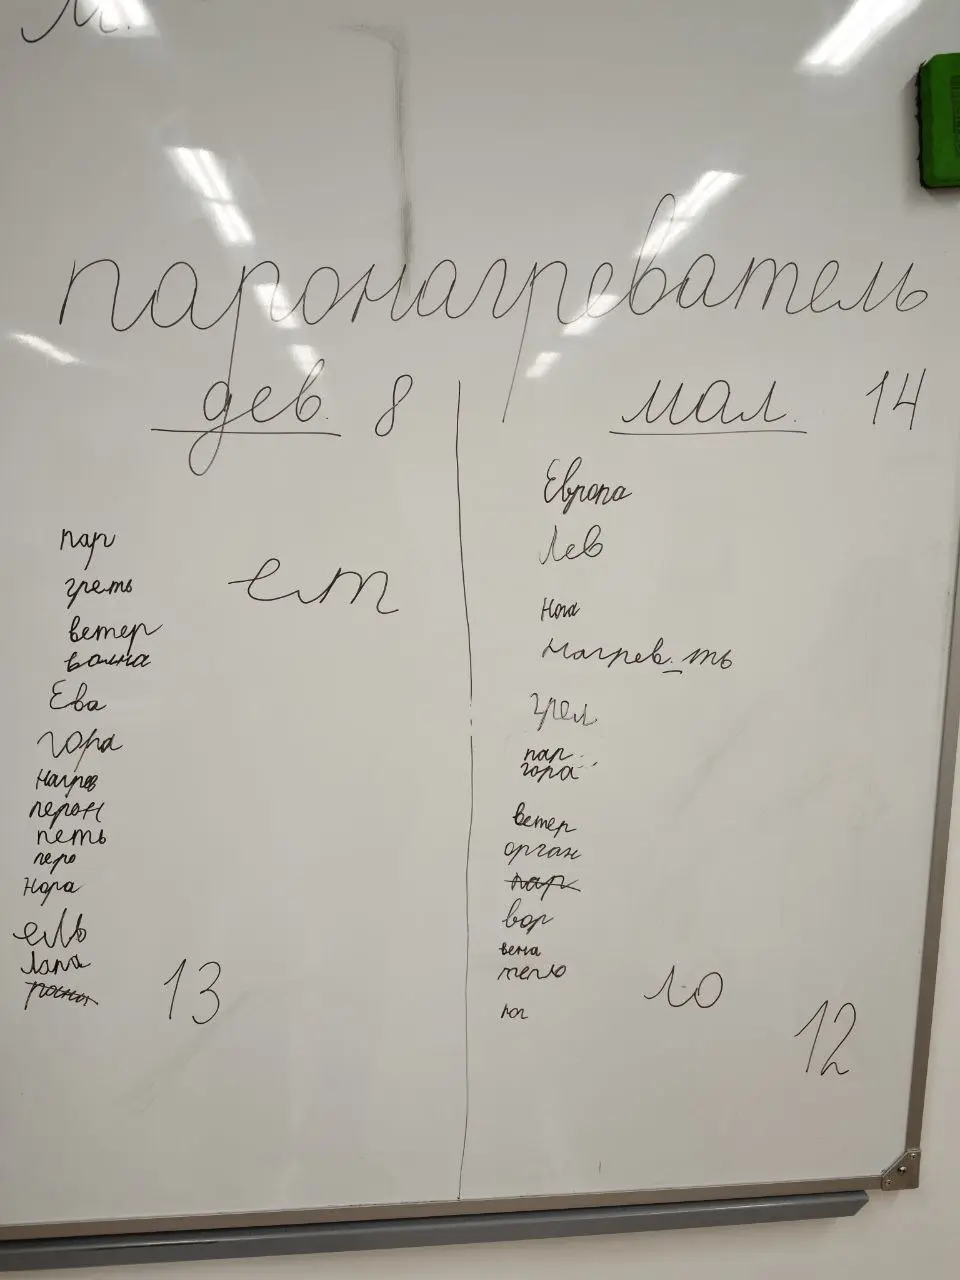 М.
паронагреватель
дев. 8
мал. 14
пар
греть
ет
ветер
волна
Ева
гора
нагрев
перон
петь
перо
нора
ель
лапа
13
Европа
Лев
нога
нагрев.ть
грел
пар
гора
ветер
орган
пар
вор
вена
тепло
10
12